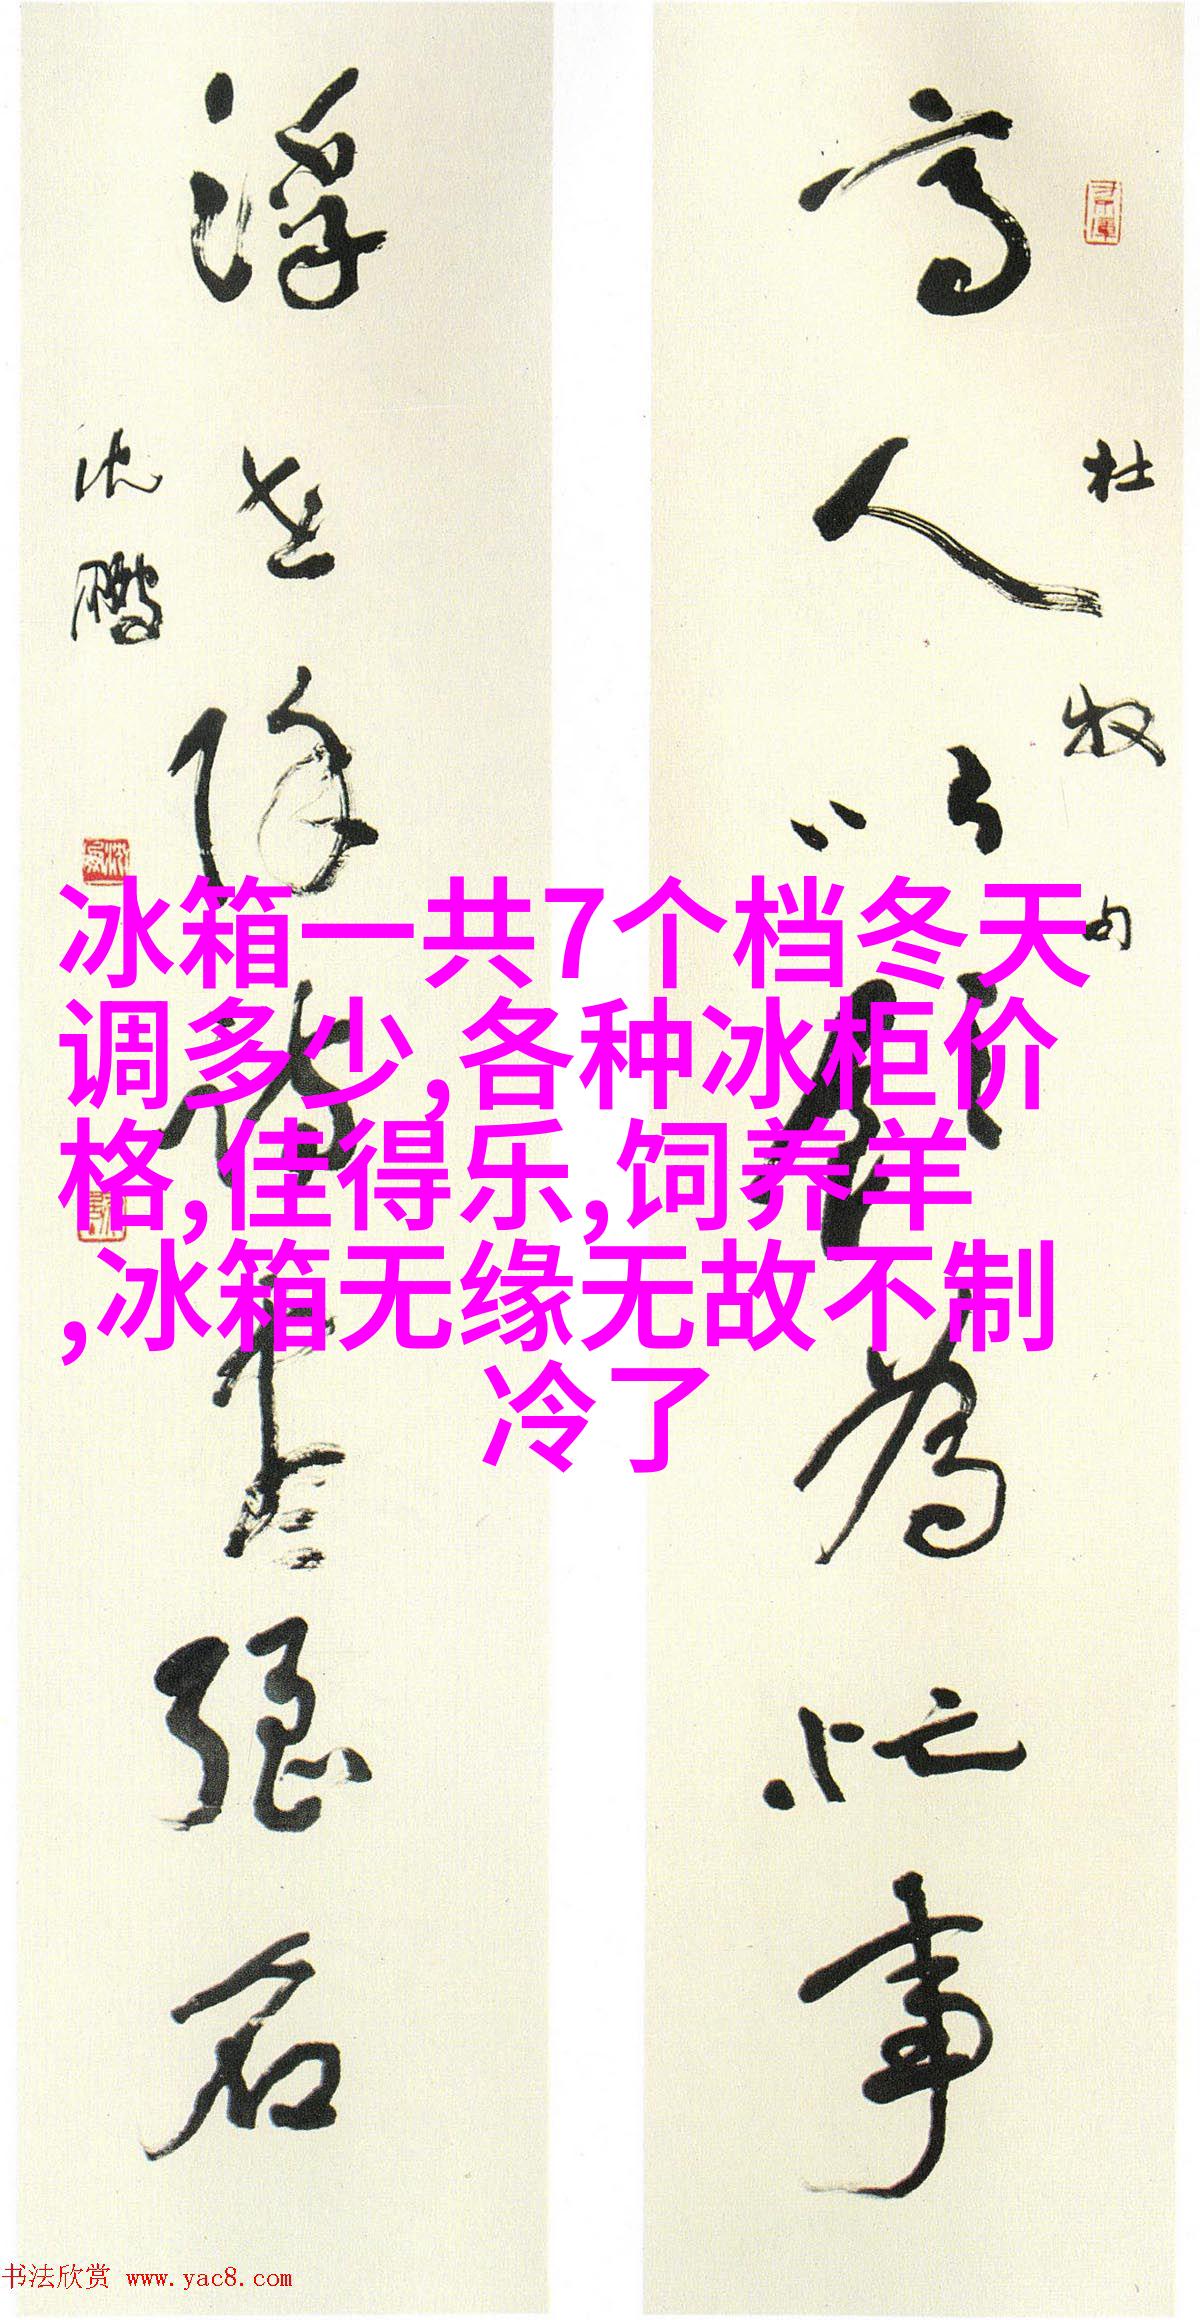 高人以飲為忙事
杜牧句
浮世除詩盡强名
沈鹏
冰箱一共7个档冬天
调多少,各种冰柜价
格,佳得乐,饲养羊
,冰箱无缘无故不制
冷了
书法欣赏 www.yac8.com